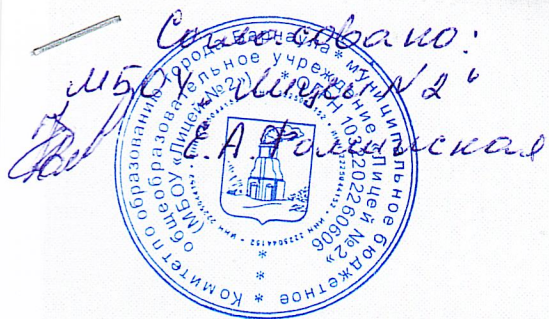 Согласовано:
МБОУ "Лицей №2"
Е.А.
Комитет по образованию города Барнаула * муниципальное бюджетное
общеобразовательное учреждение «Лицей №2»
(МБОУ «Лицей №2») * ОГРН 1022202260606
* ИНН 2225044152 * ИНН 2225044152